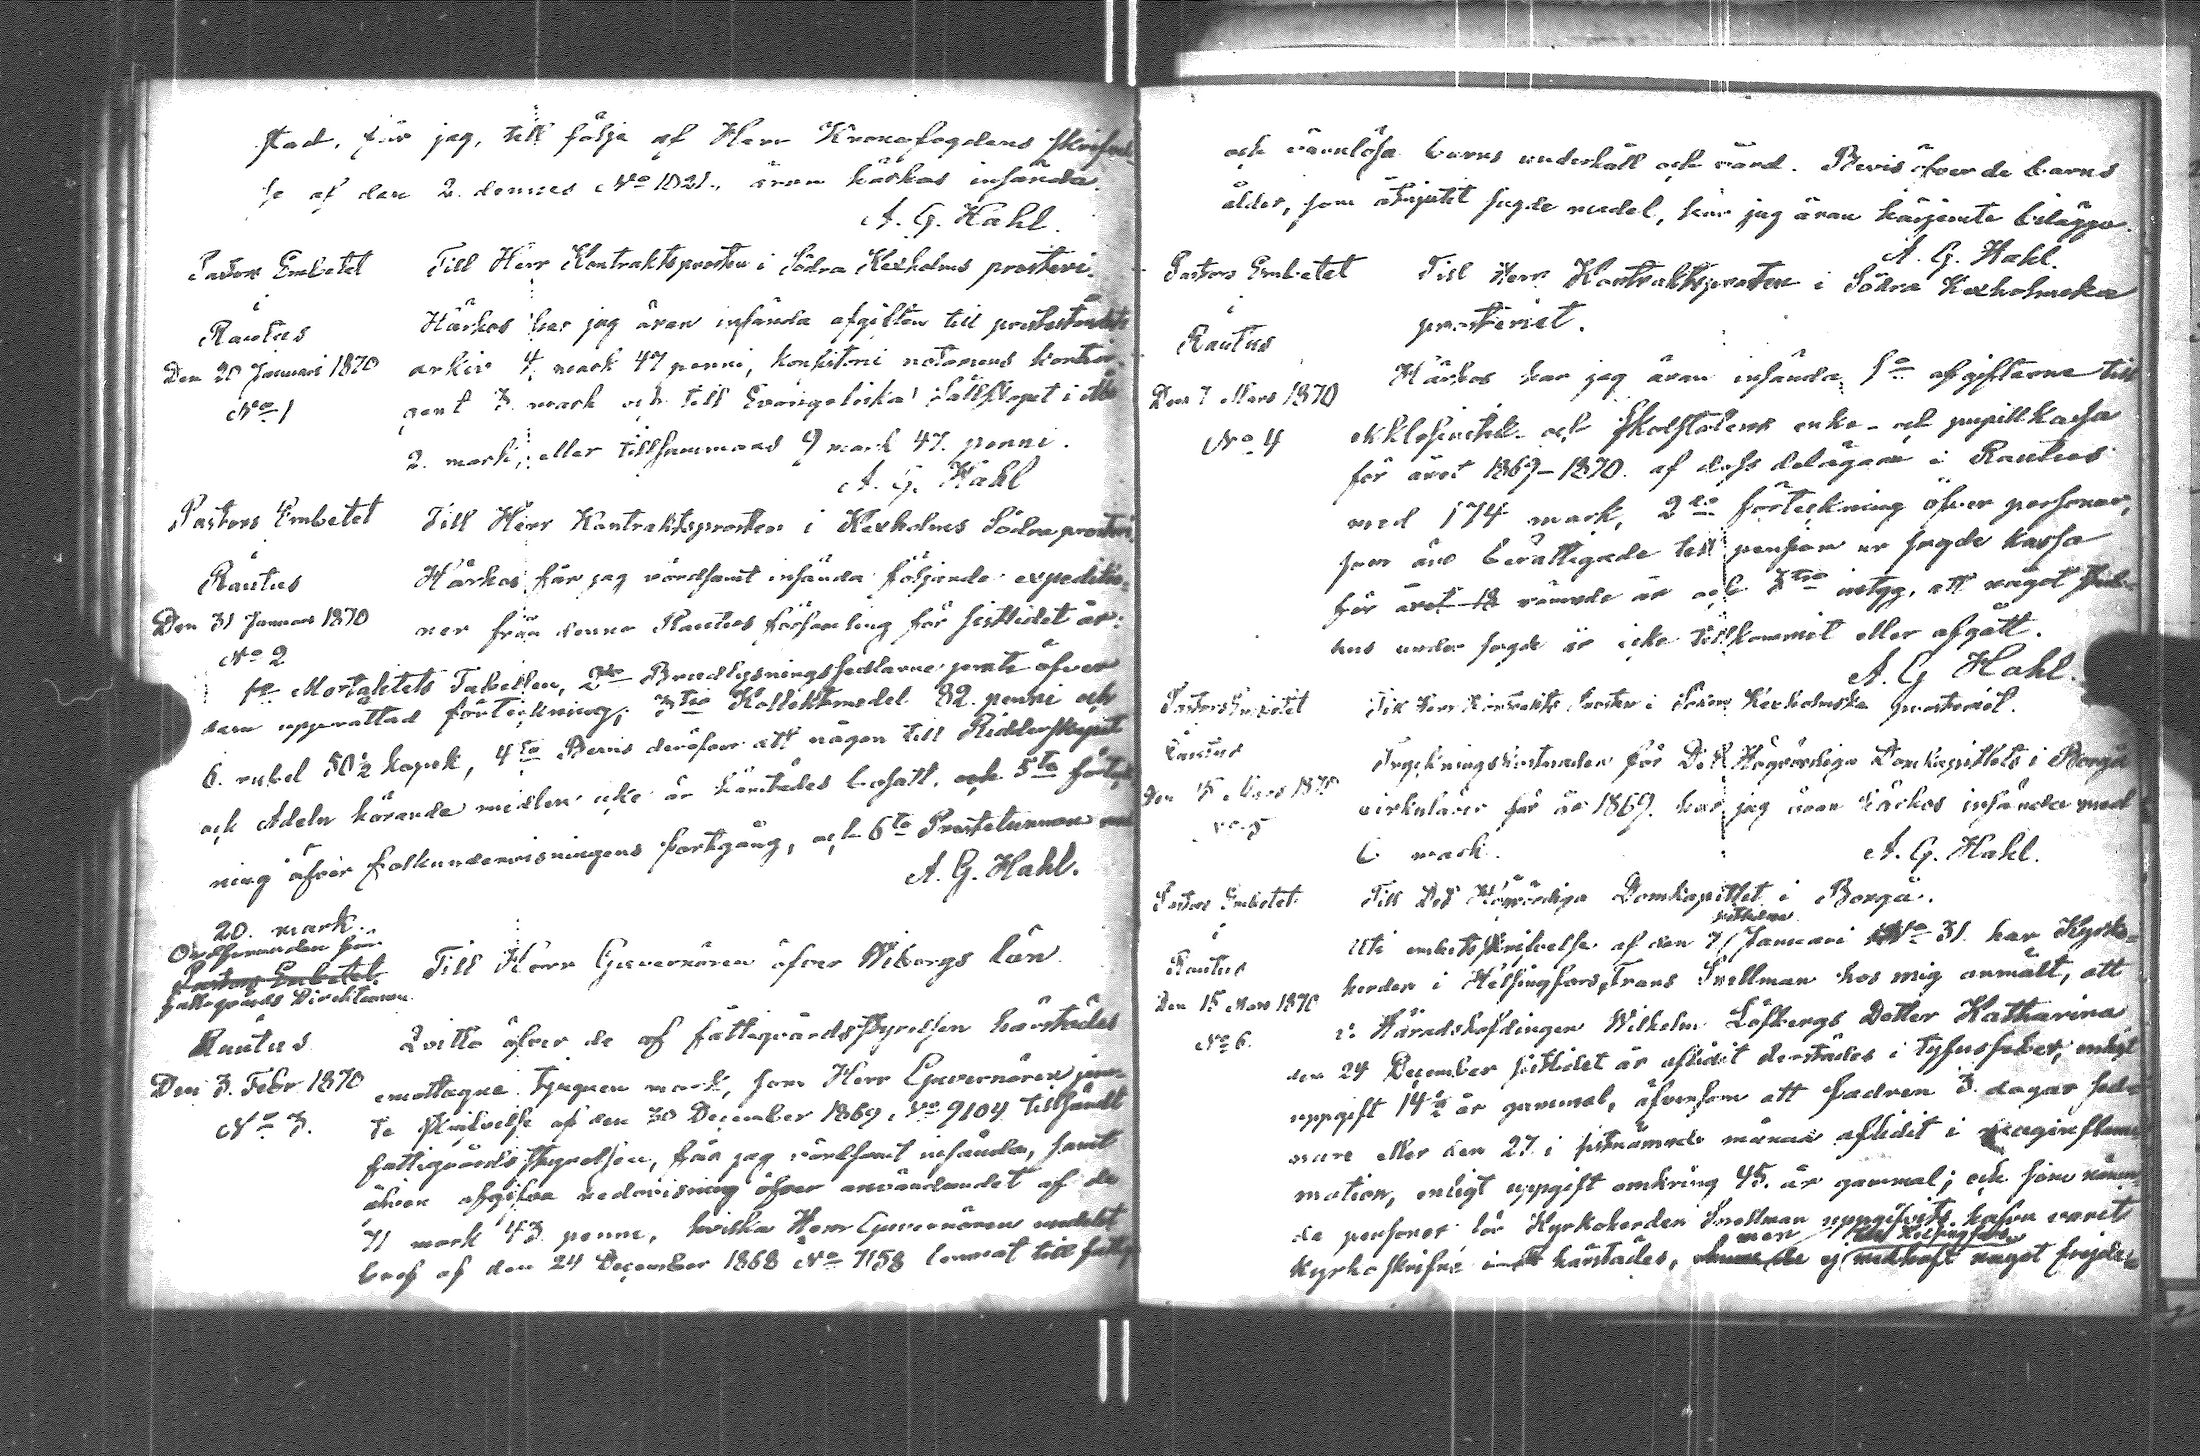 stad, får jag, till följe af Herr Kronofogdens skrifvel
se af den 2. dennes No 1021., äran härhos insända.
A. G. Hahl.
Pastors Embetet
i
Rautus
Den 20 Januari 1870
No 1
Till Herr Kontraktsprosten i Södra Kexholms prosteri.
Härhos har jag äran insända afgiften till
arkiv 4. mark 47 penni, konsistorii notariens
gent 3. mark och till Evangeliska Sällskapet i Åbo
2. mark, eller tillsammans 9 mark 47. penni.
A. G. Hahl
Pastors Embetet
i
Rautus
Den 31 Januari 1870
No 2
Till Herr Kontraktsprosten i Kexholms Södra prosteri.
Härhos får jag vördsamt insända följande expeditio-
ner från denna Rautus församling för sistlidet år:
1o Mortalitets Tabellen, 2do Brudlysningssedlarne jemte öfver
dem upprättad förteckning; 3tio Kollektmedel 32. penni och
6. rubel 50½ kopek, 4to Bevis deröfver att någon till Ridderskapet
och Adeln hörande medlem icke är härstädes bosatt, och 5to förteck
ning öfver folkundervisningens fortgång, och 6to Prostetunnan med
20. mark.
A. G. Hahl.
Ordföranden för
Pastors Embetet.
Fattigvårds Direktionen
i
Rautus
Den 3. Febr 1870
No 3.
Till Herr Guvernören öfver Wiborgs län.
Qvitto öfver de af fattigvårdsstyrelsen härstädes
emottagne tjuguen mark, som Herr Guvernören jem-
te skrifvelse af den 30 December 1869, No 9104 tillsändt
fattigvårdsstyrelsen, får jag vördsamt insända, samt
äfven afgifva redovisning öfver användandet af de
71 mark 43 penni, hvilka Herr Guvernören medelst
bref af den 24 December 1868 No 7158 lemnat till fattig
och värnlösa barns underhåll och vård. Bevis öfver de barns
ålder, som åtnjutit sagde medel, har jag äran härjemte bilägga.
A. G. Hahl.
Pastors Embetet
i
Rautus
Den 7 Mars 1870
No 4
Till Herr Kontraktsprosten i Södra Kexholmska
prosteriet.
Härhos har jag äran insända, 1o afgifterna till
ekklesiastik- och skolstatens enke- och pupillkassa
för året 1869–1870. af dess delägare i Rautus
med 174 mark, 2do förteckning öfver personer,
som äro berättigade till pension ur sagde kassa
för året 18 nämnde år och 3tio intyg, att något
hus under sagde år icke tillkommit eller afgått.
A. G Hahl.
Pastors Embetet
i
Rautus
Den 15 Mars 1870
No 5
Till Herr Kontrakts Prosten i Södra Kexholmska prosteriet.
Tryckningskostnaden för Det Högvördiga Domkapitlets i Borgå
cirkulärer för år 1869. har jag äran härhos insända med
6 mark.
A. G. Hahl.
Pastors Embetet
i
Rautus
Den 15 Mars 1870
No 6.
Till Det Högvördiga Domkapitlet i Borgå.
Uti embetsskrifvelse af den 7 Januari No 31. har Kyrko-
herden i Helsingfors, Frans Snellman hos mig anmält, att
v. Häradshöfdingen Wilhelm Löfbergs Dotter Katharina
den 24 December sistlidet år aflidit derstädes i tyfusfeber, enligt
uppgift 14½ år gammal, äfvensom att fadren 3. dagar sed-
nare eller den 27. i sistnämnde månad aflidit i
mation, enligt uppgift omkring 45. år gammal; och som nämn
de personer för Kyrkoherden Snellman uppgifvits hafva varit
men till Helsingfors
Kyrkoskrifne härstädes, de ej medhaft något frejde-